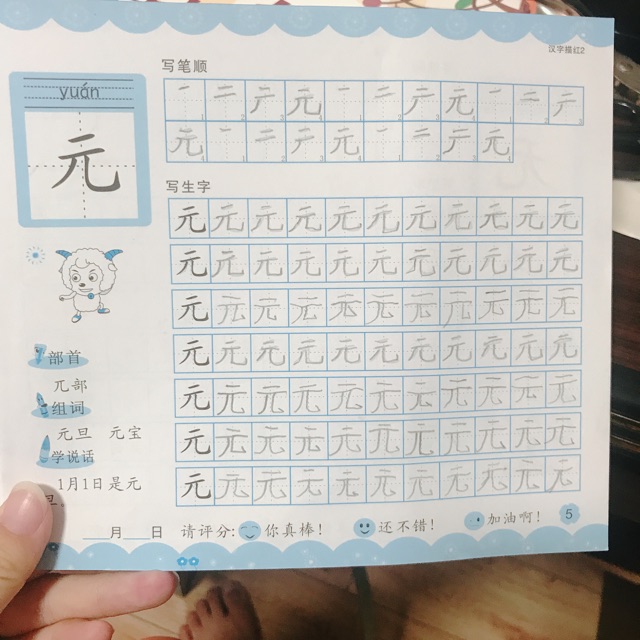 汉字描红2
写笔顺
yuán
元
一 二 𠂆 元 一 二 𠂆 元 一 二 𠂆
元 一 二 𠂆 元 一 二 𠂆 元
写生字
元 元 元 元 元 元 元 元 元 元 元
元 元 元 元 元 元 元 元 元 元 元
元 元 元 元 元 元 元 元 元 元 元
元 元 元 元 元 元 元 元 元 元 元
元 元 元 元 元 元 元 元 元 元 元
元 元 元 元 元 元 元 元 元 元 元
元 元 元 元 元 元 元 元 元 元 元
部首
兀部
组词
元旦 元宝
学说话
1月1日是元
旦。
月 日 请评分: 你真棒! 还不错! 加油啊! 5